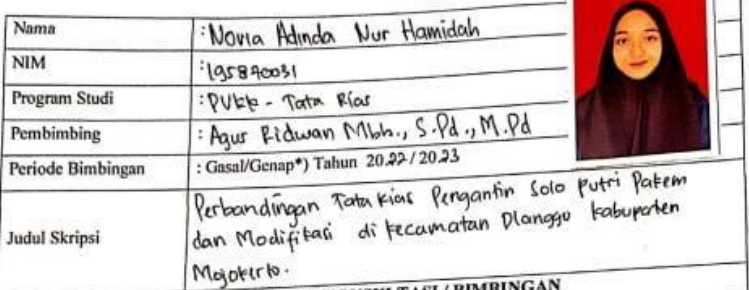 Nama : Novia Adinda Nur Hamidah
NIM : 195890031
Program Studi : PVKK - Tata Rias
Pembimbing : Agus Ridwan Mbh., S.Pd., M.Pd
Periode Bimbingan : Gasal/Genap*) Tahun 2022/2023
Judul Skripsi
Perbandingan Tata Rias Pengantin Solo Putri Pakem
dan Modifikasi di Kecamatan Dlanggu Kabupaten
Mojokerto.
BIMBINGAN